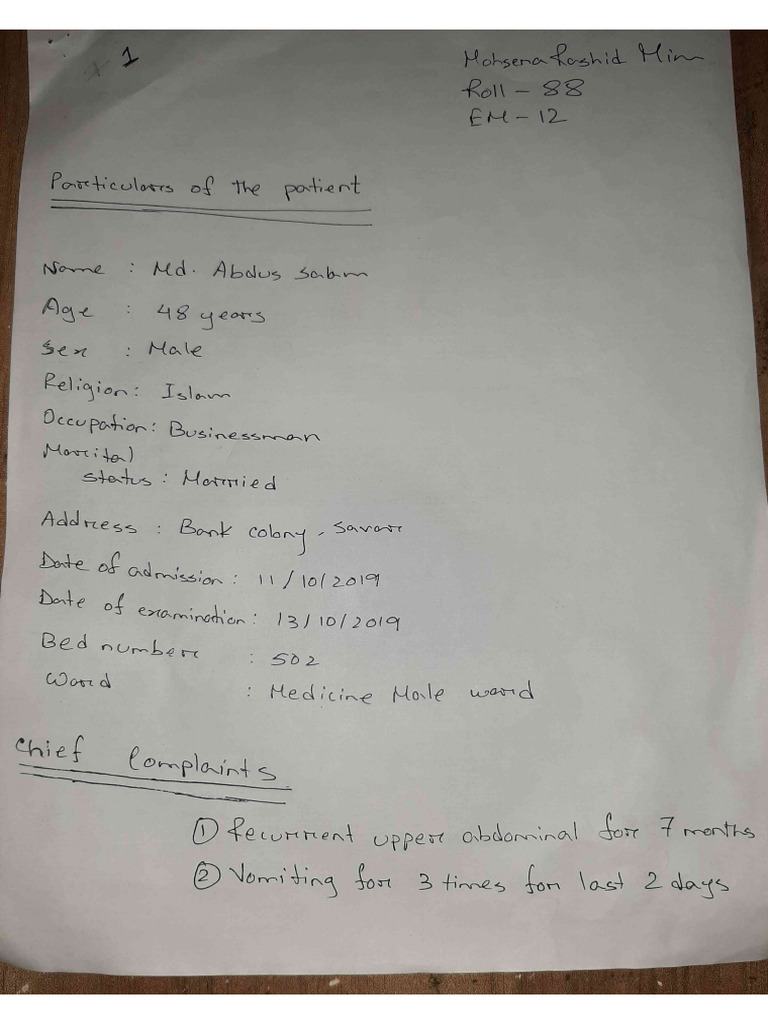 1
Mohsena Rashid Mim
Roll - 88
EM - 12
Particulars of the patient
Name : Md. Abdus Salam
Age : 48 years
Sex : Male
Religion : Islam
Occupation : Businessman
Marital
status : Married
Address : Bank colony, Savar
Date of admission : 11/10/2019
Date of examination : 13/10/2019
Bed number : 502
Ward : Medicine Male ward
Chief Complaints
① Recurrent upper abdominal for 7 months
② Vomiting for 3 times for last 2 days